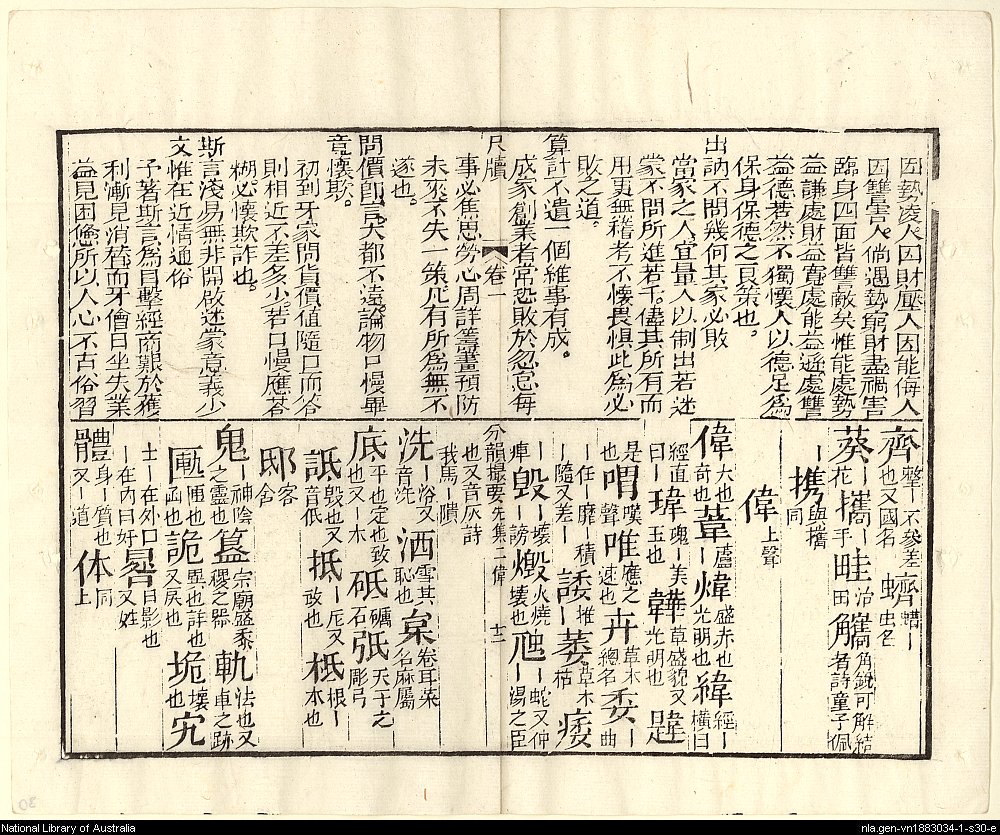 因勢凌人因財壓人因能侮人
因讐害人倘遇勢窮財盡禍害
臨身四面皆讐敵矣惟能處勢
益謙處財益寬處能益遜處讐
益德若然不獨懷人以德足為
保身保德之良策也
出訥不問幾何其家必敗
當家之人宜量入以制出若迷
蒙不問所進若干儘其所有而
用更無稽考不懷畏懼此為必
敗之道
算計不遺一個維事有成
成家創業者常恐敗於忽怠每
尺牘 卷一
事必焦思勞心周詳籌畫預防
未來不失一策凡有所為無不
遂也
問價即言大都不遠論物口慢畢
竟懷欺
初到牙家問貨價值隨口而答
則相近不差多少若口慢應答
糊必懷欺詐也
斯言淺易無非開啟迷蒙意義少
文惟在近情通俗
予著斯言為目擊經商艱於獲
利漸見消替而牙儈日坐失業
益見困憊所以人心不古俗習
齊整一不參差也又國名 蠐螬一虫名
葵花一 攜一手 畦治一田 觿角銳可解結者詩童子佩
一
携與攜同
偉上聲
偉大也奇也 葦蘆一 煒盛赤也光明也 緯經一橫曰
緯經直曰一 瑋瑰一美玉也 韡草盛貌又光明也 韙
是也 喟嘆聲 唯應之速也 卉草木總名 委一曲
一任一靡一積一隨又差一 諉推一 萎草木一枯 痿
痺一 毀一壞一謗 燬火燒壞也 虺一蛇又仲一湯之臣
分韻撮要先集二偉 十二
也又音灰詩我馬一隤
洗一浴又音冼 洒雪其恥也 枲卷耳菜名麻屬
底平也定也致也又一木 砥礪石 弤天子之彫弓
詆毀也又音低 抵一厇又敌也 柢根一本也
邸客舍
鬼一神陰之靈也 簋宗廟盛黍稷之器 軌法也又車之跡
匭匣也函也 詭異也詐也又戾也 垝壞也 宄
士一在外口一在內曰奸 晷日影也又姓
體身一質也又一道 体同上
National Library of Australia
nla.gen-vn1883034-1-s30-e